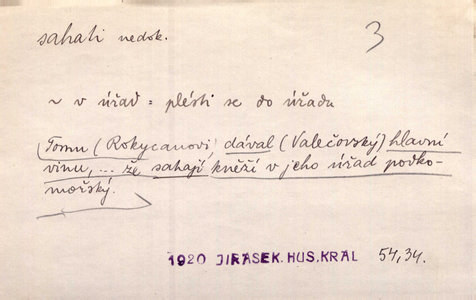 sahati nedok.
3
~ v úřad = plésti se do úřadu
Tomu (Rokycanovi) dával (Valečovský) hlavní
vinu, ... že sahají kněží v jeho úřad podko-
mořský.
1920 JIRASEK. HUS. KRAL 54,34.